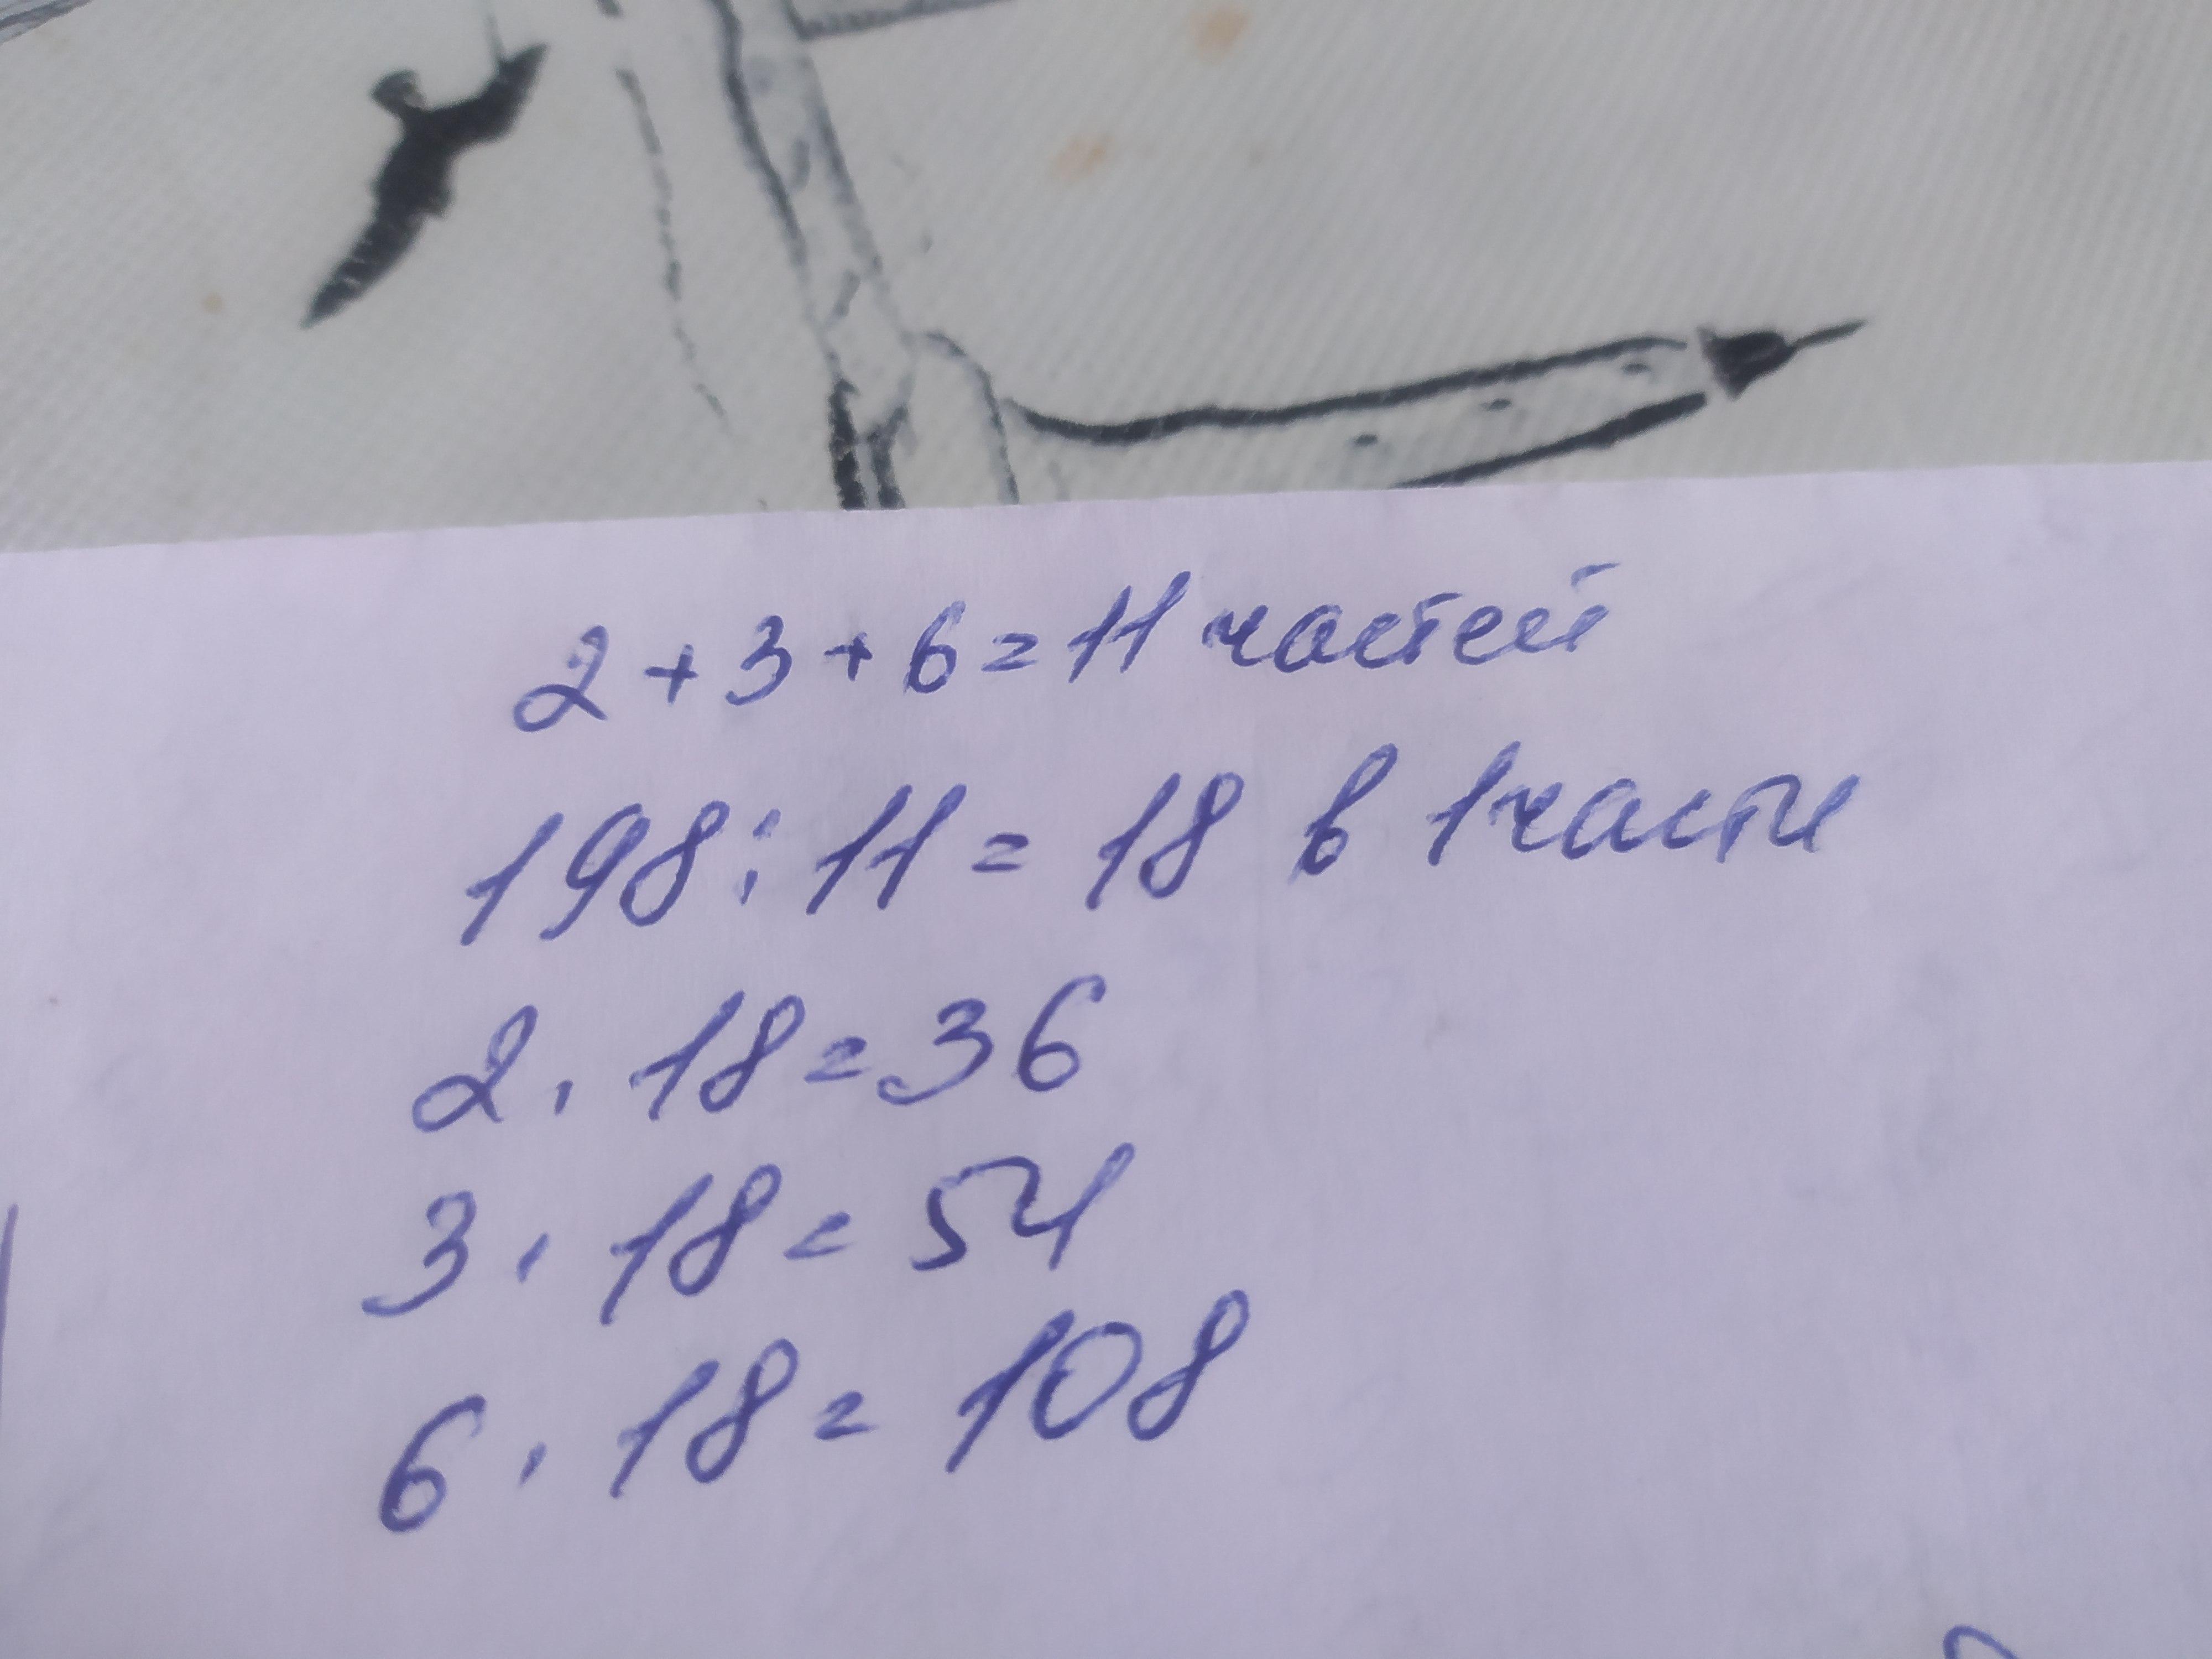 2 + 3 + 6 = 11 частей
198 : 11 = 18 в 1 части
2 · 18 = 36
3 · 18 = 54
6 · 18 = 108